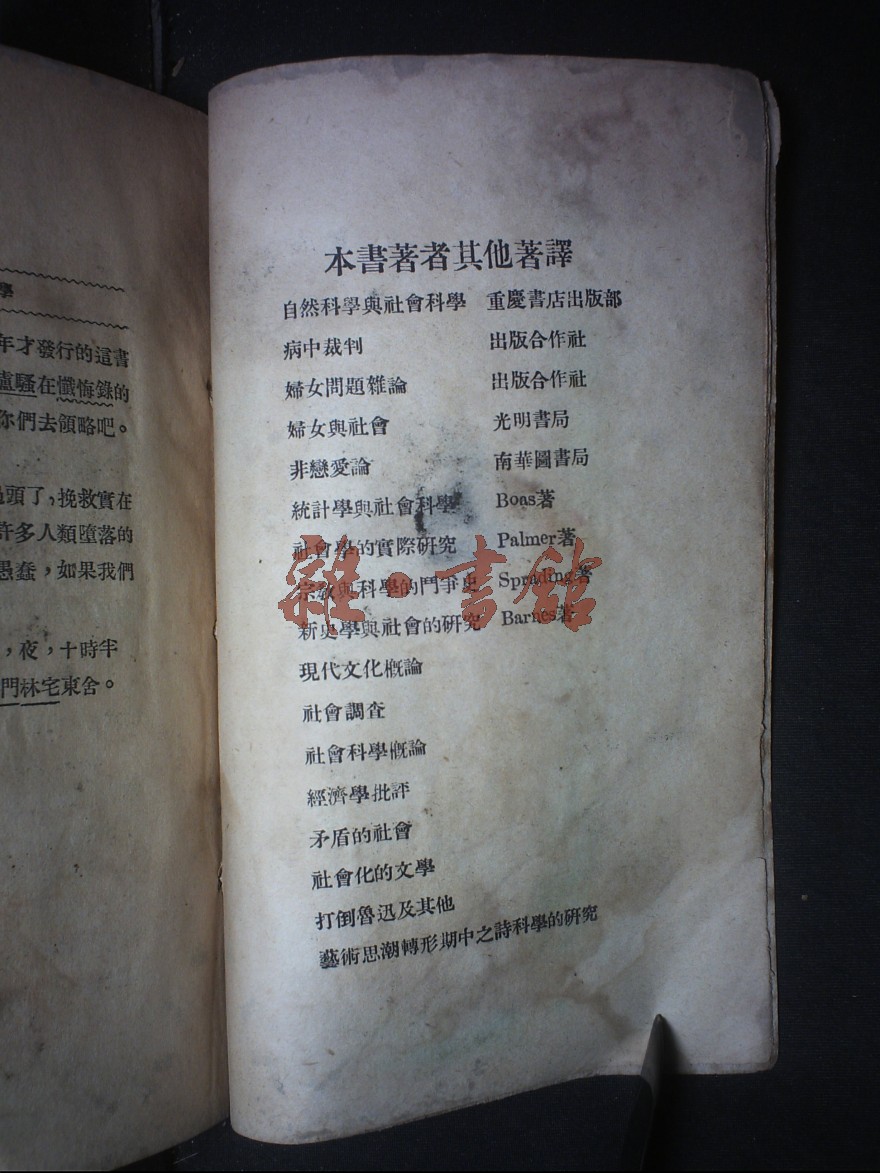 學
年才發行的這書
盧騷在懺悔錄的
你們去領略吧。
過頭了，挽救實在
許多人類墮落的
愚蠢，如果我們
，夜，十時半
門林宅東舍。
本書著者其他著譯
自然科學與社會科學 重慶書店出版部
病中裁判 出版合作社
婦女問題雜論 出版合作社
婦女與社會 光明書局
非戀愛論 南華圖書局
統計學與社會科學 Boas著
社會學的實際研究 Palmer著
宗敎與科學的鬥爭史 Sprading著
新史學與社會的研究 Barnes著
現代文化概論
社會調查
社會科學概論
經濟學批評
矛盾的社會
社會化的文學
打倒魯迅及其他
藝術思潮轉形期中之詩科學的研究
雜·書館